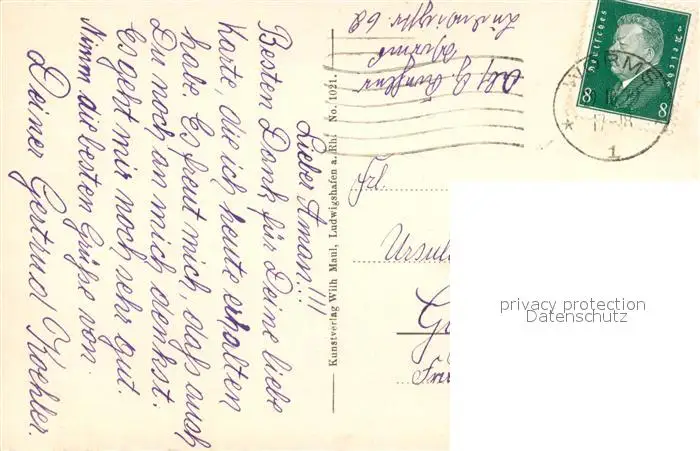 Lieber Aman!!!
Besten Dank für Deine liebe
Karte, die ich heute erhalten
habe. Es freut mich, daß auch
Du noch an mich denkst.
Es geht mir noch sehr gut.
Nimm die besten Grüße von
Deiner Gertrud Koehler.
Kunstverlag Wilh Maul, Ludwigshafen a. Rh. No. 1021.
Deutsches Reich
8 8
WORMS
1
Frl.
privacy protection
Datenschutz